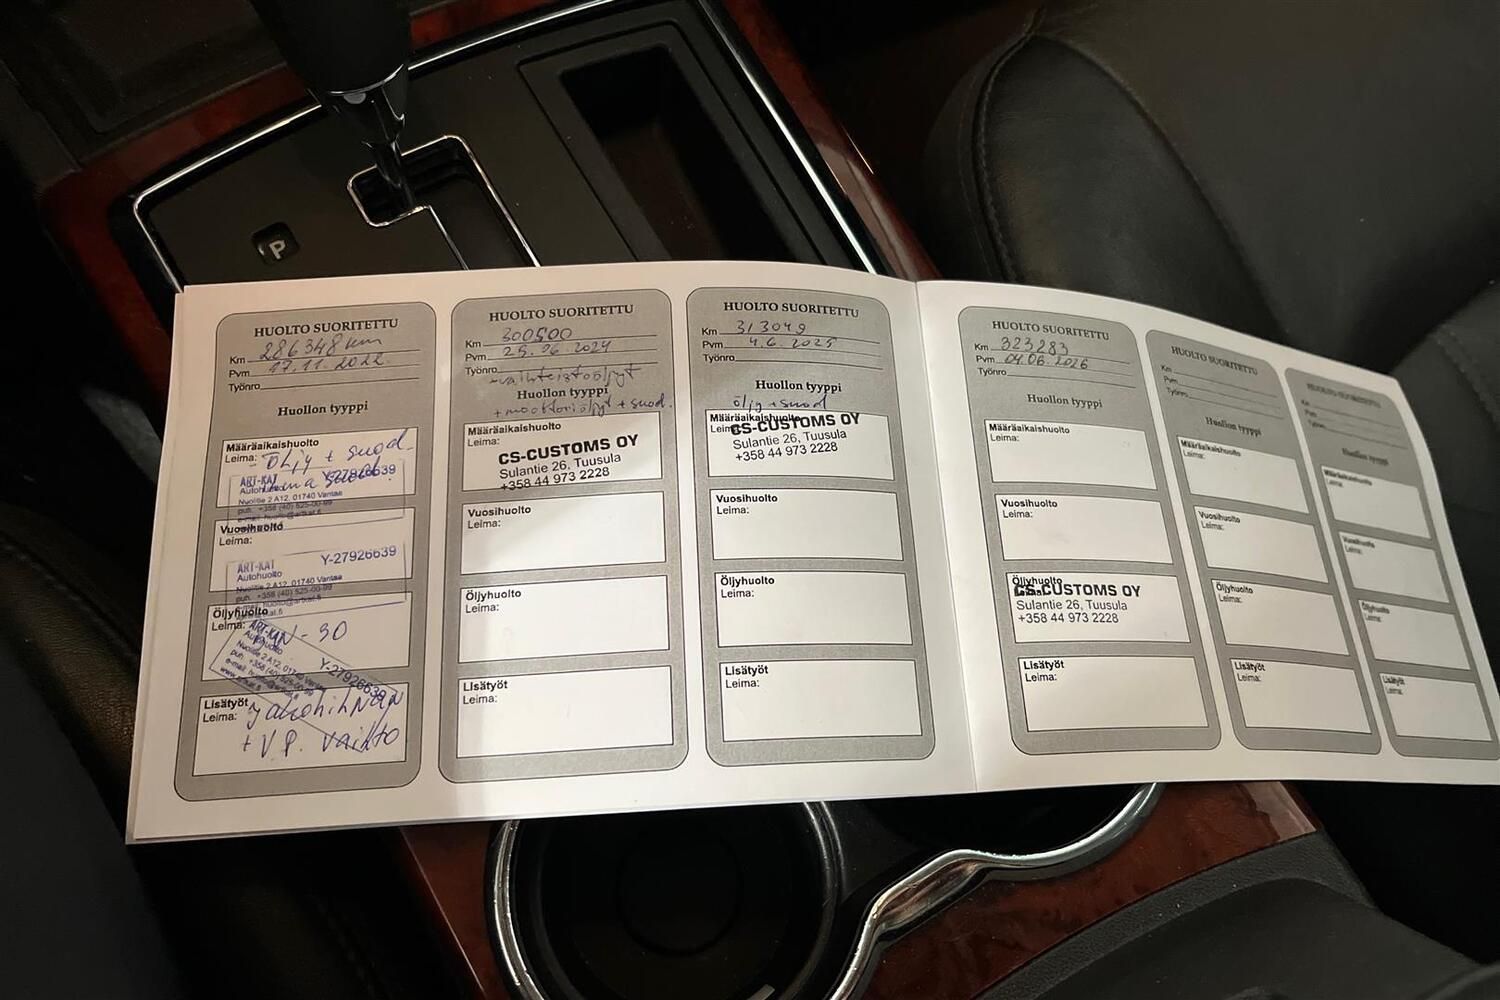 P
HUOLTO SUORITETTU
Km 286348 km
Pvm 17.11.2022.
Työnro
Huollon tyyppi
Määräaikaishuolto
Leima: - öljy + suod.
ART-KAT Y-27926639
Autohuolto
Nuolitie 2 A12, 01740 Vantaa
puh. +358 (40) 525-00-99
Vuosihuolto
Leima:
ART-KAT Y-27926639
Autohuolto
Nuolitie 2 A12, 01740 Vantaa
puh. +358 (40) 525-00-99
Öljyhuolto
Leima: -30
ART-KAT Y-27926639
Autohuolto
Nuolitie 2 A12, 01740 Vantaa
puh. +358 (40) 525-00-99
Lisätyöt
Leima: jakohihnan
+ V.P. vaihto
HUOLTO SUORITETTU
Km 300500
Pvm 25.06.2024
Työnro - vaihteistoöljyt
Huollon tyyppi
+ moottoriöljyt + suod.
Määräaikaishuolto
Leima:
CS-CUSTOMS OY
Sulantie 26, Tuusula
+358 44 973 2228
Vuosihuolto
Leima:
Öljyhuolto
Leima:
Lisätyöt
Leima:
HUOLTO SUORITETTU
Km 313049
Pvm 4.6.2025
Työnro
Huollon tyyppi
öljy + suod
Määräaikaishuolto
Leima:
CS-CUSTOMS OY
Sulantie 26, Tuusula
+358 44 973 2228
Vuosihuolto
Leima:
Öljyhuolto
Leima:
Lisätyöt
Leima:
HUOLTO SUORITETTU
Km 323283
Pvm 04.06.2026
Työnro
Huollon tyyppi
Määräaikaishuolto
Leima:
Vuosihuolto
Leima:
Öljyhuolto
Leima:
CS-CUSTOMS OY
Sulantie 26, Tuusula
+358 44 973 2228
Lisätyöt
Leima:
HUOLTO SUORITETTU
Km
Pvm
Työnro
Huollon tyyppi
Määräaikaishuolto
Leima:
Vuosihuolto
Leima:
Öljyhuolto
Leima:
Lisätyöt
Leima:
HUOLTO SUORITETTU
Km
Pvm
Työnro
Huollon tyyppi
Määräaikaishuolto
Leima:
Vuosihuolto
Leima:
Öljyhuolto
Leima:
Lisätyöt
Leima: